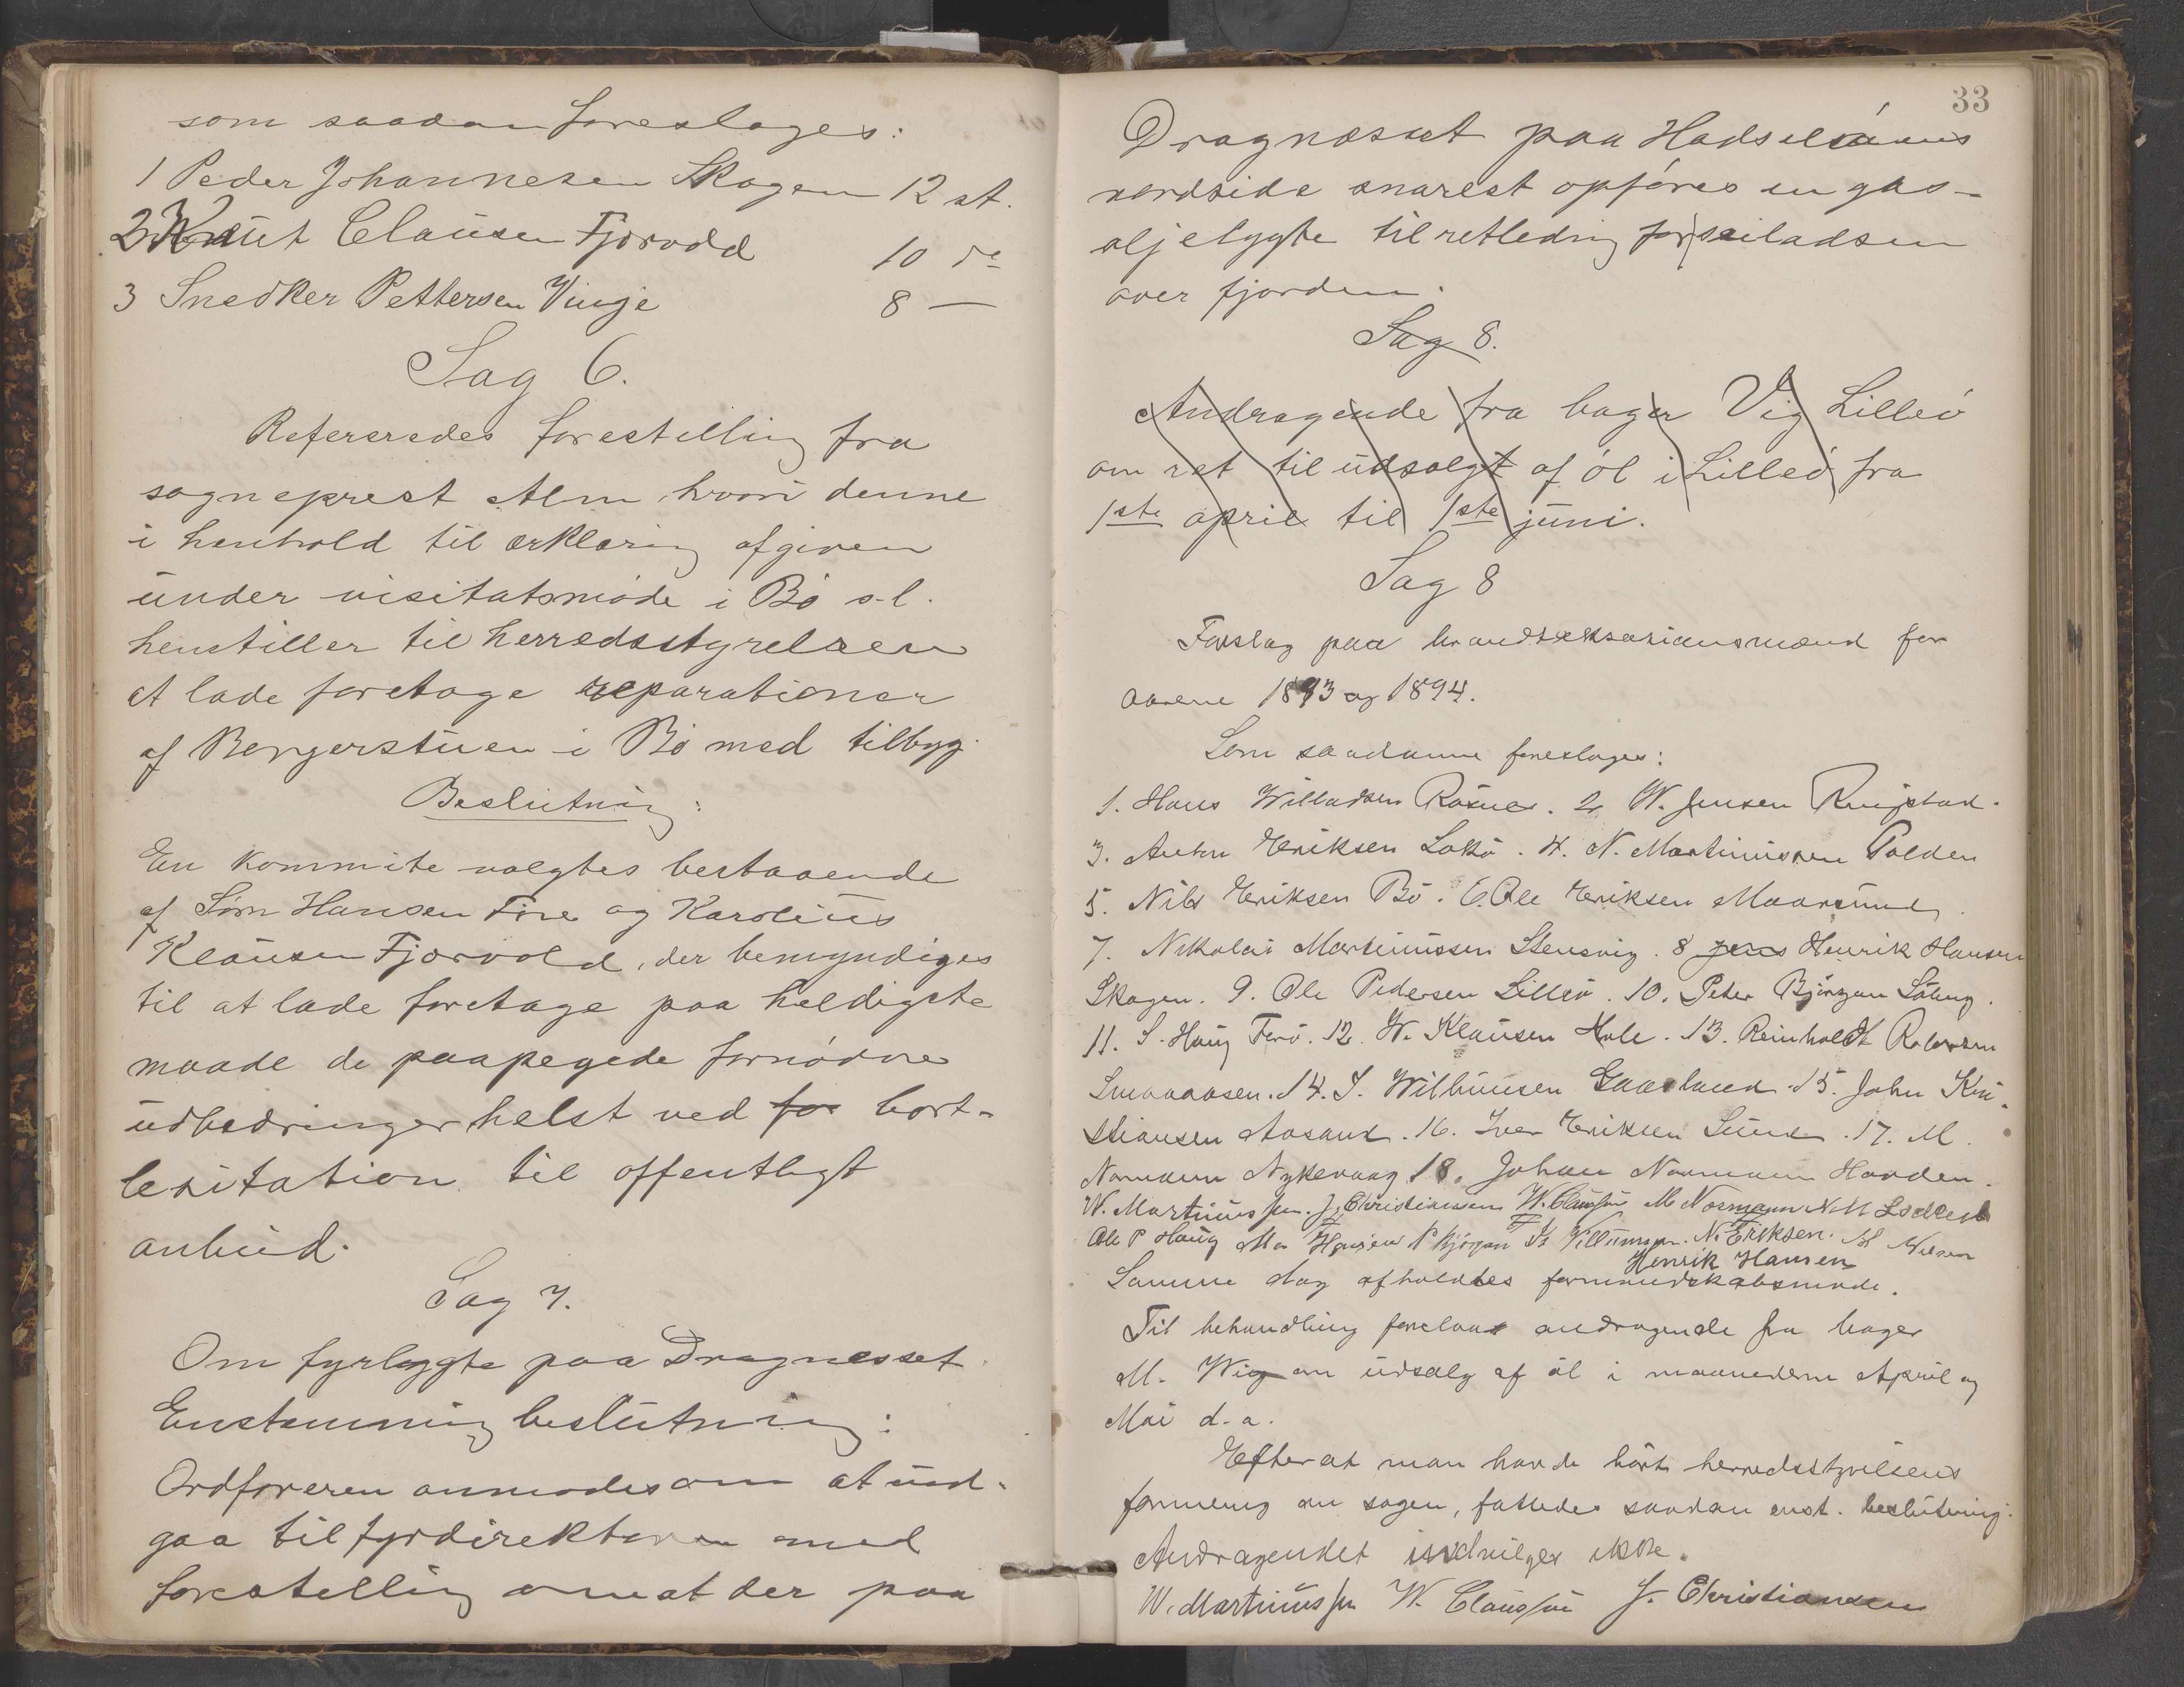 som saadan foreslages:
1 Peder Johannesen Skagen 12 st.
2 Knut Clausen Fjærvold 10 do
3 Snedker Pettersen Vinje 8 —
Sag 6.
Refereredes forestilling fra
sogneprest Alm hvori denne
i henhold til erklæring afgiven
under visitatsmøde i Bø s.l.
henstiller til herredsstyrelsen
at lade foretage reparationer
af Borgerstuen i Bø med tilbyg.
Beslutning:
En kommite valgtes bestaaende
af Sørn Hansen Føre og Karolius
Klausen Fjærvold, der bemyndiges
til at lade foretage paa heldigste
maade de paapegede fornødne
udbedringer helst ved for bort-
lisitation til offentligt
anbud.
Sag 7.
Om fyrlygte paa Dragnesset
Enstemmig beslutning:
Ordføreren anmodes om at ind-
gaa til fyrdirektøren med
forestilling om at der paa
33
Dragnæsset paa Hadseløåens
nordside snarest opføres en gas-
oljelygte til retledning for seiladsen
over fjorden.
Sag 8.
Andragende fra bager Vig Lilleø
om ret til udsalgt af øl i Lilleø fra
1ste april til 1ste juni.
Sag 8
Forslag paa brandtaksasionsmænd for
aarene 1893 og 1894.
Som saadanne foreslages:
1. Hans Willadsen Røsnes. 2 W. Jensen Ringstad.
3. Anton Eriksen Lokø. 4. N. Martinussen Polden
5. Nils Eriksen Bø. 6. Ole Eriksen Maarsund
7. Nikolai Martinussen Stensvig. 8 Jens Henrik Hansen
Skagen. 9. Ole Pedersen Lilleø. 10. Peter Bjørgan Søberg.
11. S. Haug Førø. 12. W. Klausen Hole. 13. Reinholdt Robertsen
Smaaaasen. 14. J. Willumsen Gaasland. 15. John Kri-
stiansen Aasand. 16. Iver Eriksen Sund. 17. M.
Normann Nykevaag 18. Johan Normann Hovden.
W. Martinussen. J. Christiansen W. Claussen M Normann N. M
Ole P Haug M. Hansen P Bjørgan Willumsen. N. Eriksen. Nilsen
Henrik Hansen
Samme dag afholdtes formandskabsmøde.
Til behandling forelaa andragende fra bager
M. Wig om udsalg af øl i maanederne April og
Mai d.a.
Efterat man havde hørt herredsstyrelsens
formening om sagen, fattedes saadan enst. beslutning:
Andragendet indvilges ikke.
W. Martinussen W. Claussen J. Christiansen